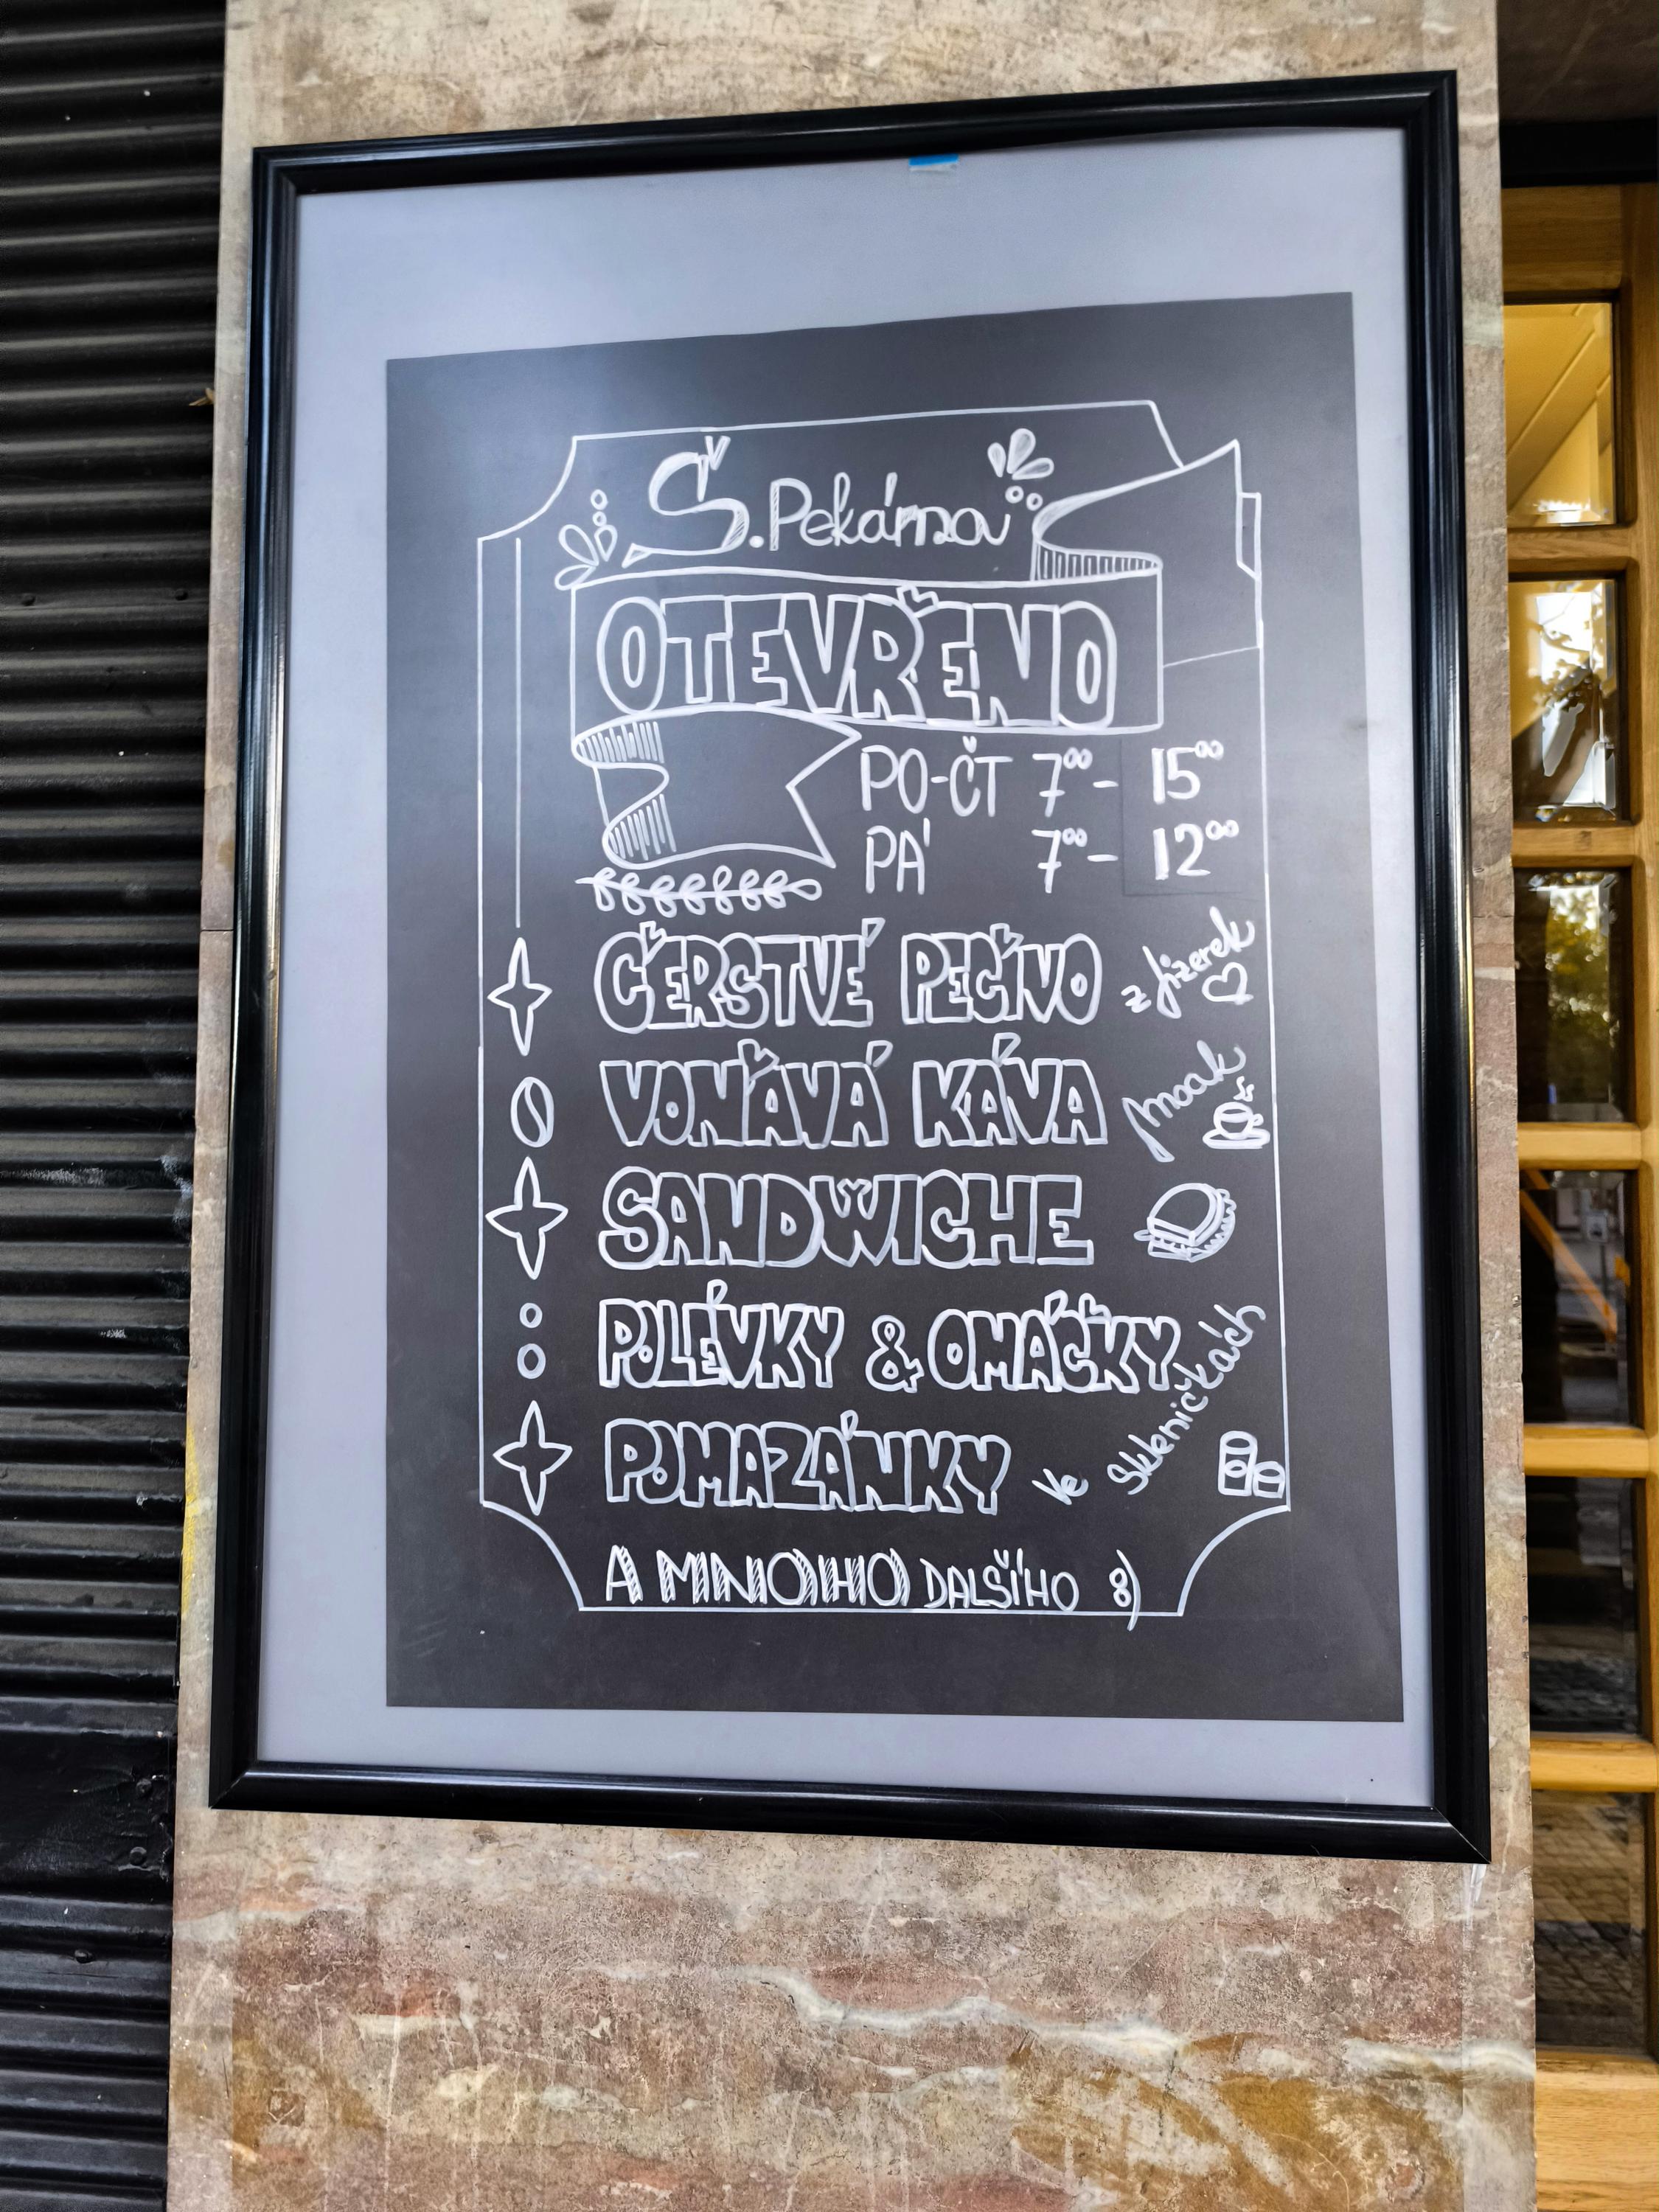 Š.Pekárna
OTEVŘENO
PO-ČT 7⁰⁰- 15⁰⁰
PÁ 7⁰⁰- 12⁰⁰
ČERSTVÉ PEČIVO z Jizerek
VOŇAVÁ KÁVA moak
SANDWICHE
POLÉVKY & OMÁČKY
POMAZÁNKY ve skleničkách
A MNOHO DALŠÍHO 8)